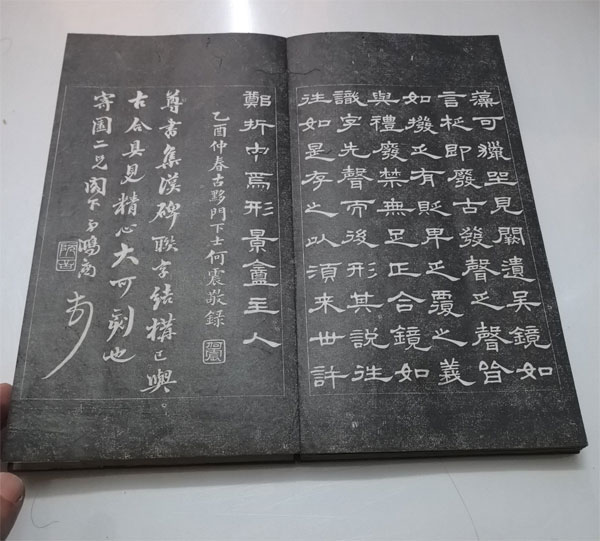 藻可獵見闕遺吳鏡如
言即廢古發聲乏聲皆
如撥乏有貶卑乏覆之義
與禮廢禁無足正合鏡如
識字先聲而後形其說往
往如是存之以須來世許
鄭折中焉形景盦主人
乙酉仲春古黟門下士何震敬錄
尊書集漢碑聯字結構已與
古合具見精心大可刻也
寄圃二兄閣下弟鴻